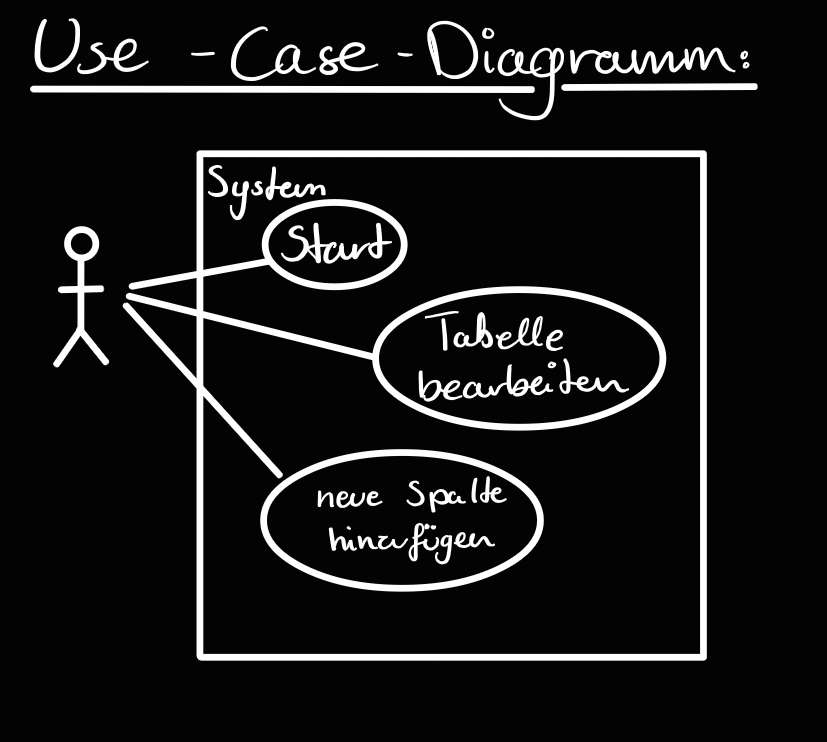 Use-Case-Diagramm:
System
Start
Tabelle
bearbeiten
neue Spalte
hinzufügen